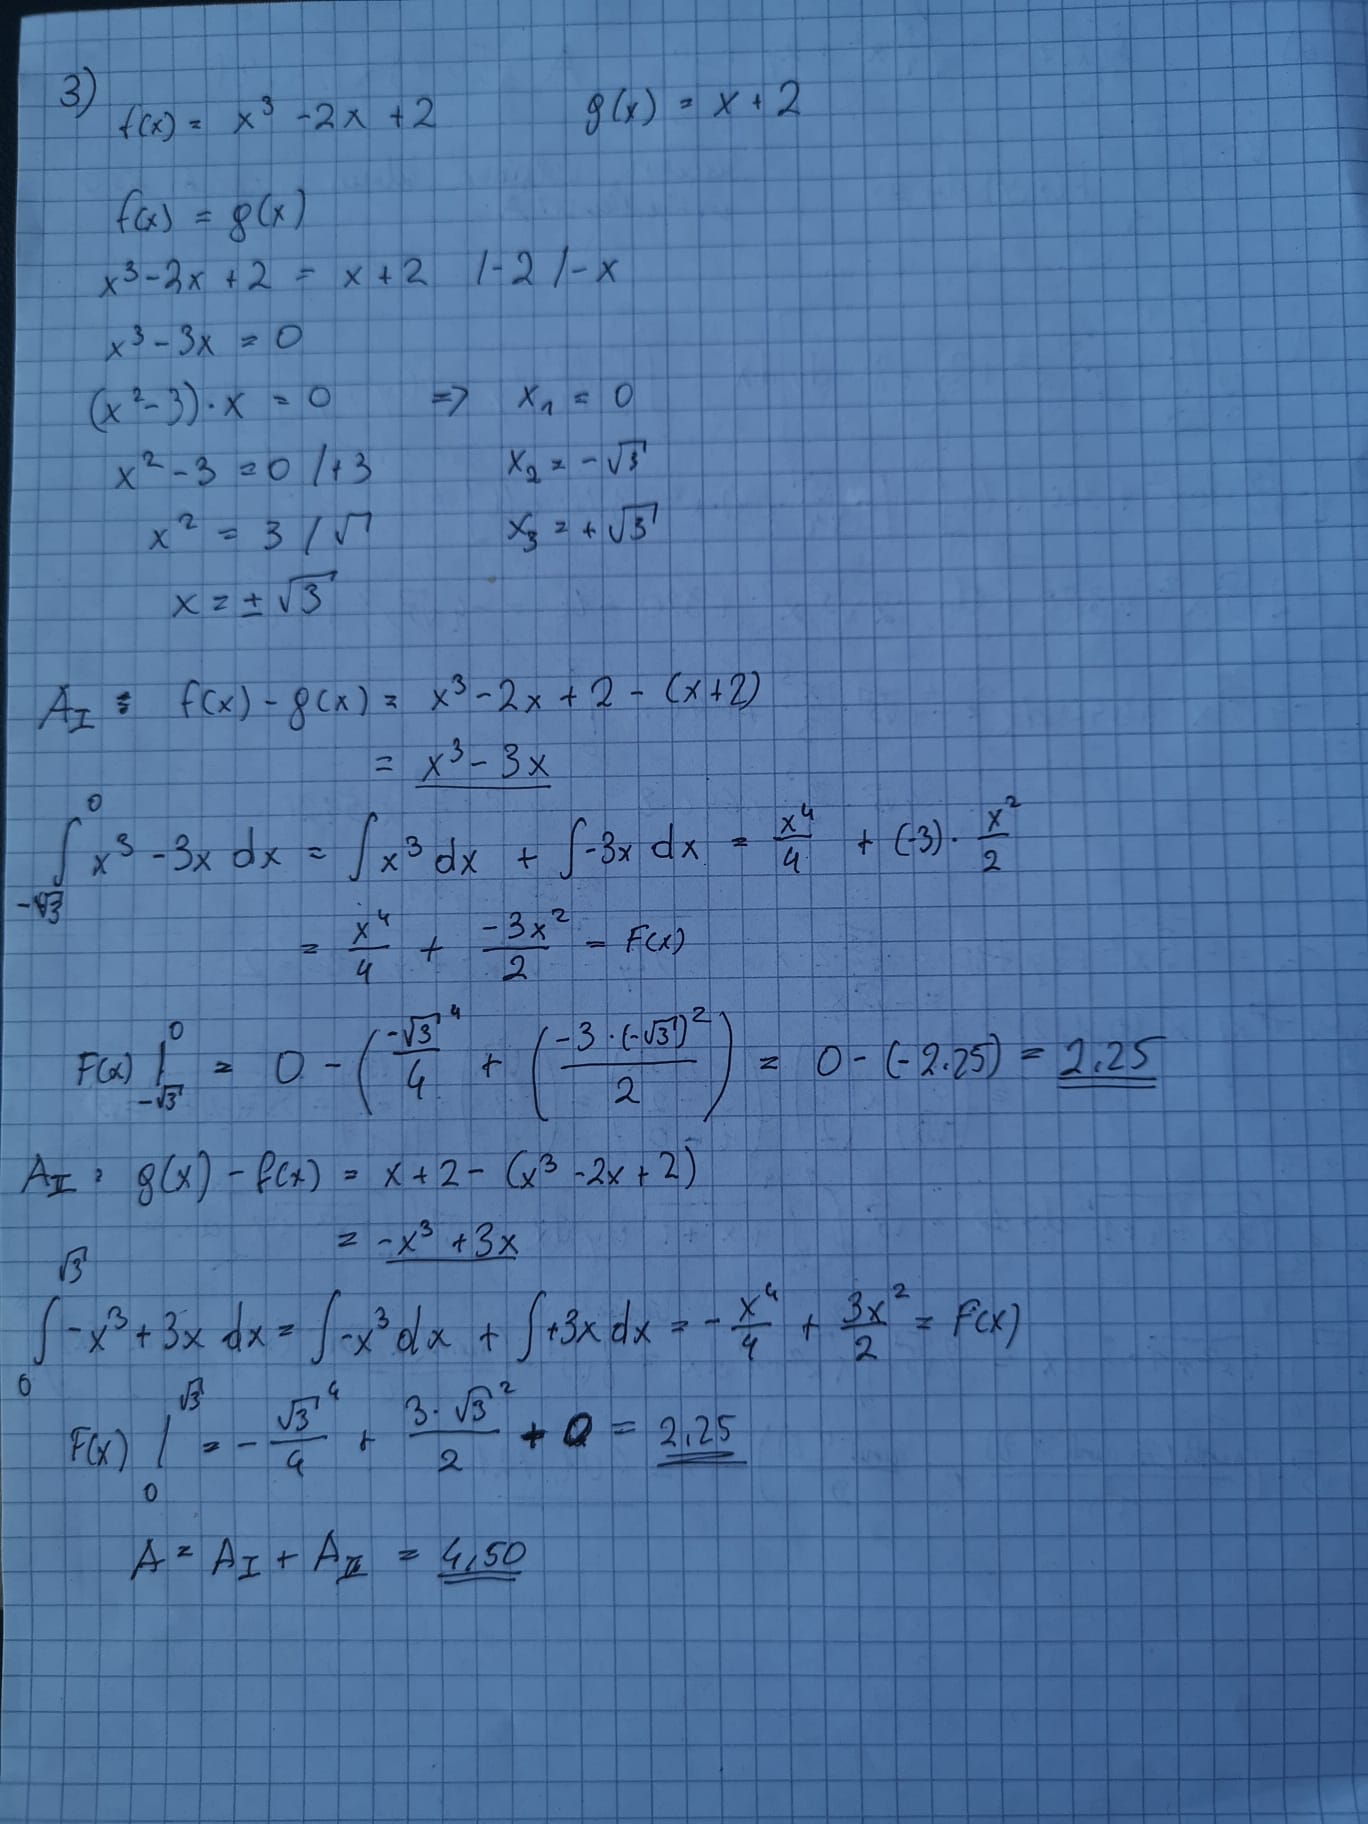 3)
f(x) = x³ - 2x + 2 g(x) = x + 2
f(x) = g(x)
x³ - 2x + 2 = x + 2 /-2 /-x
x³ - 3x = 0
(x² - 3) · x = 0 => x₁ = 0
x² - 3 = 0 /+3 x₂ = -√3
x² = 3 /√ x₃ = +√3
x = ±√3
A_I : f(x) - g(x) = x³ - 2x + 2 - (x+2)
= x³ - 3x
∫_{-√3}^{0} x³ - 3x dx = ∫ x³ dx + ∫ -3x dx = x⁴/4 + (-3) · x²/2
= x⁴/4 + -3x²/2 = F(x)
F(x) |_{-√3}^{0} = 0 - (-√3⁴/4 + (-3·(-√3)²/2) = 0 - (-2.25) = 2.25
A_II : g(x) - f(x) = x + 2 - (x³ - 2x + 2)
= -x³ + 3x
∫_{0}^{√3} -x³ + 3x dx = ∫ -x³ dx + ∫ +3x dx = - x⁴/4 + 3x²/2 = F(x)
F(x) |_{0}^{√3} = - √3⁴/4 + 3·√3²/2 + 0 = 2.25
A = A_I + A_II = 4,50